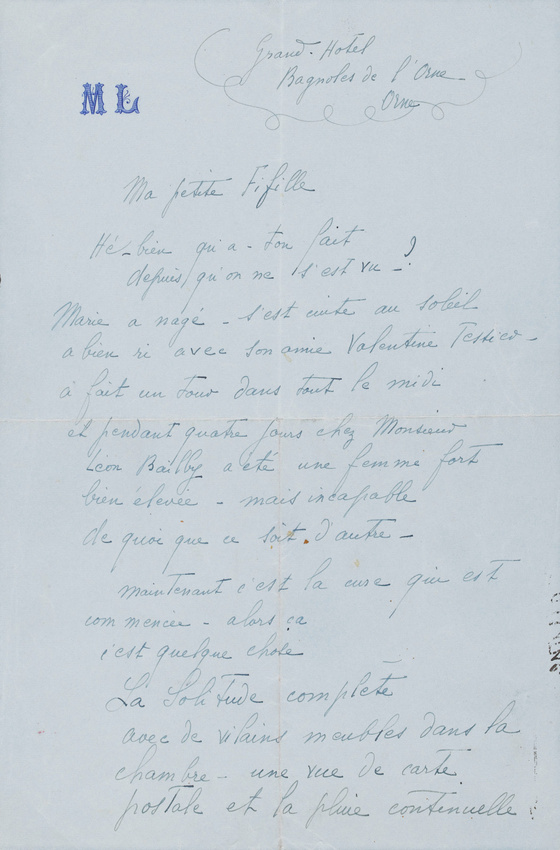 Grand-Hotel
Bagnoles de l'Orne
Orne
ML
Ma petite Fifille
Hé-bien qu'a-ton fait
depuis qu'on ne s'est vu - ?
Marie a nagé - s'est cuite au soleil
a bien ri avec son amie Valentine Tessier -
à fait un tour dans tout le midi
et pendant quatre jours chez Monsieur
Léon Bailby a été une femme fort
bien élevée - mais incapable
de quoi que ce soit d'autre -
maintenant c'est la cure qui est
commencée - alors ça
c'est quelque chose
La Solitude complète
avec de vilains meubles dans la
chambre - une vue de carte
postale et la pluie continuelle